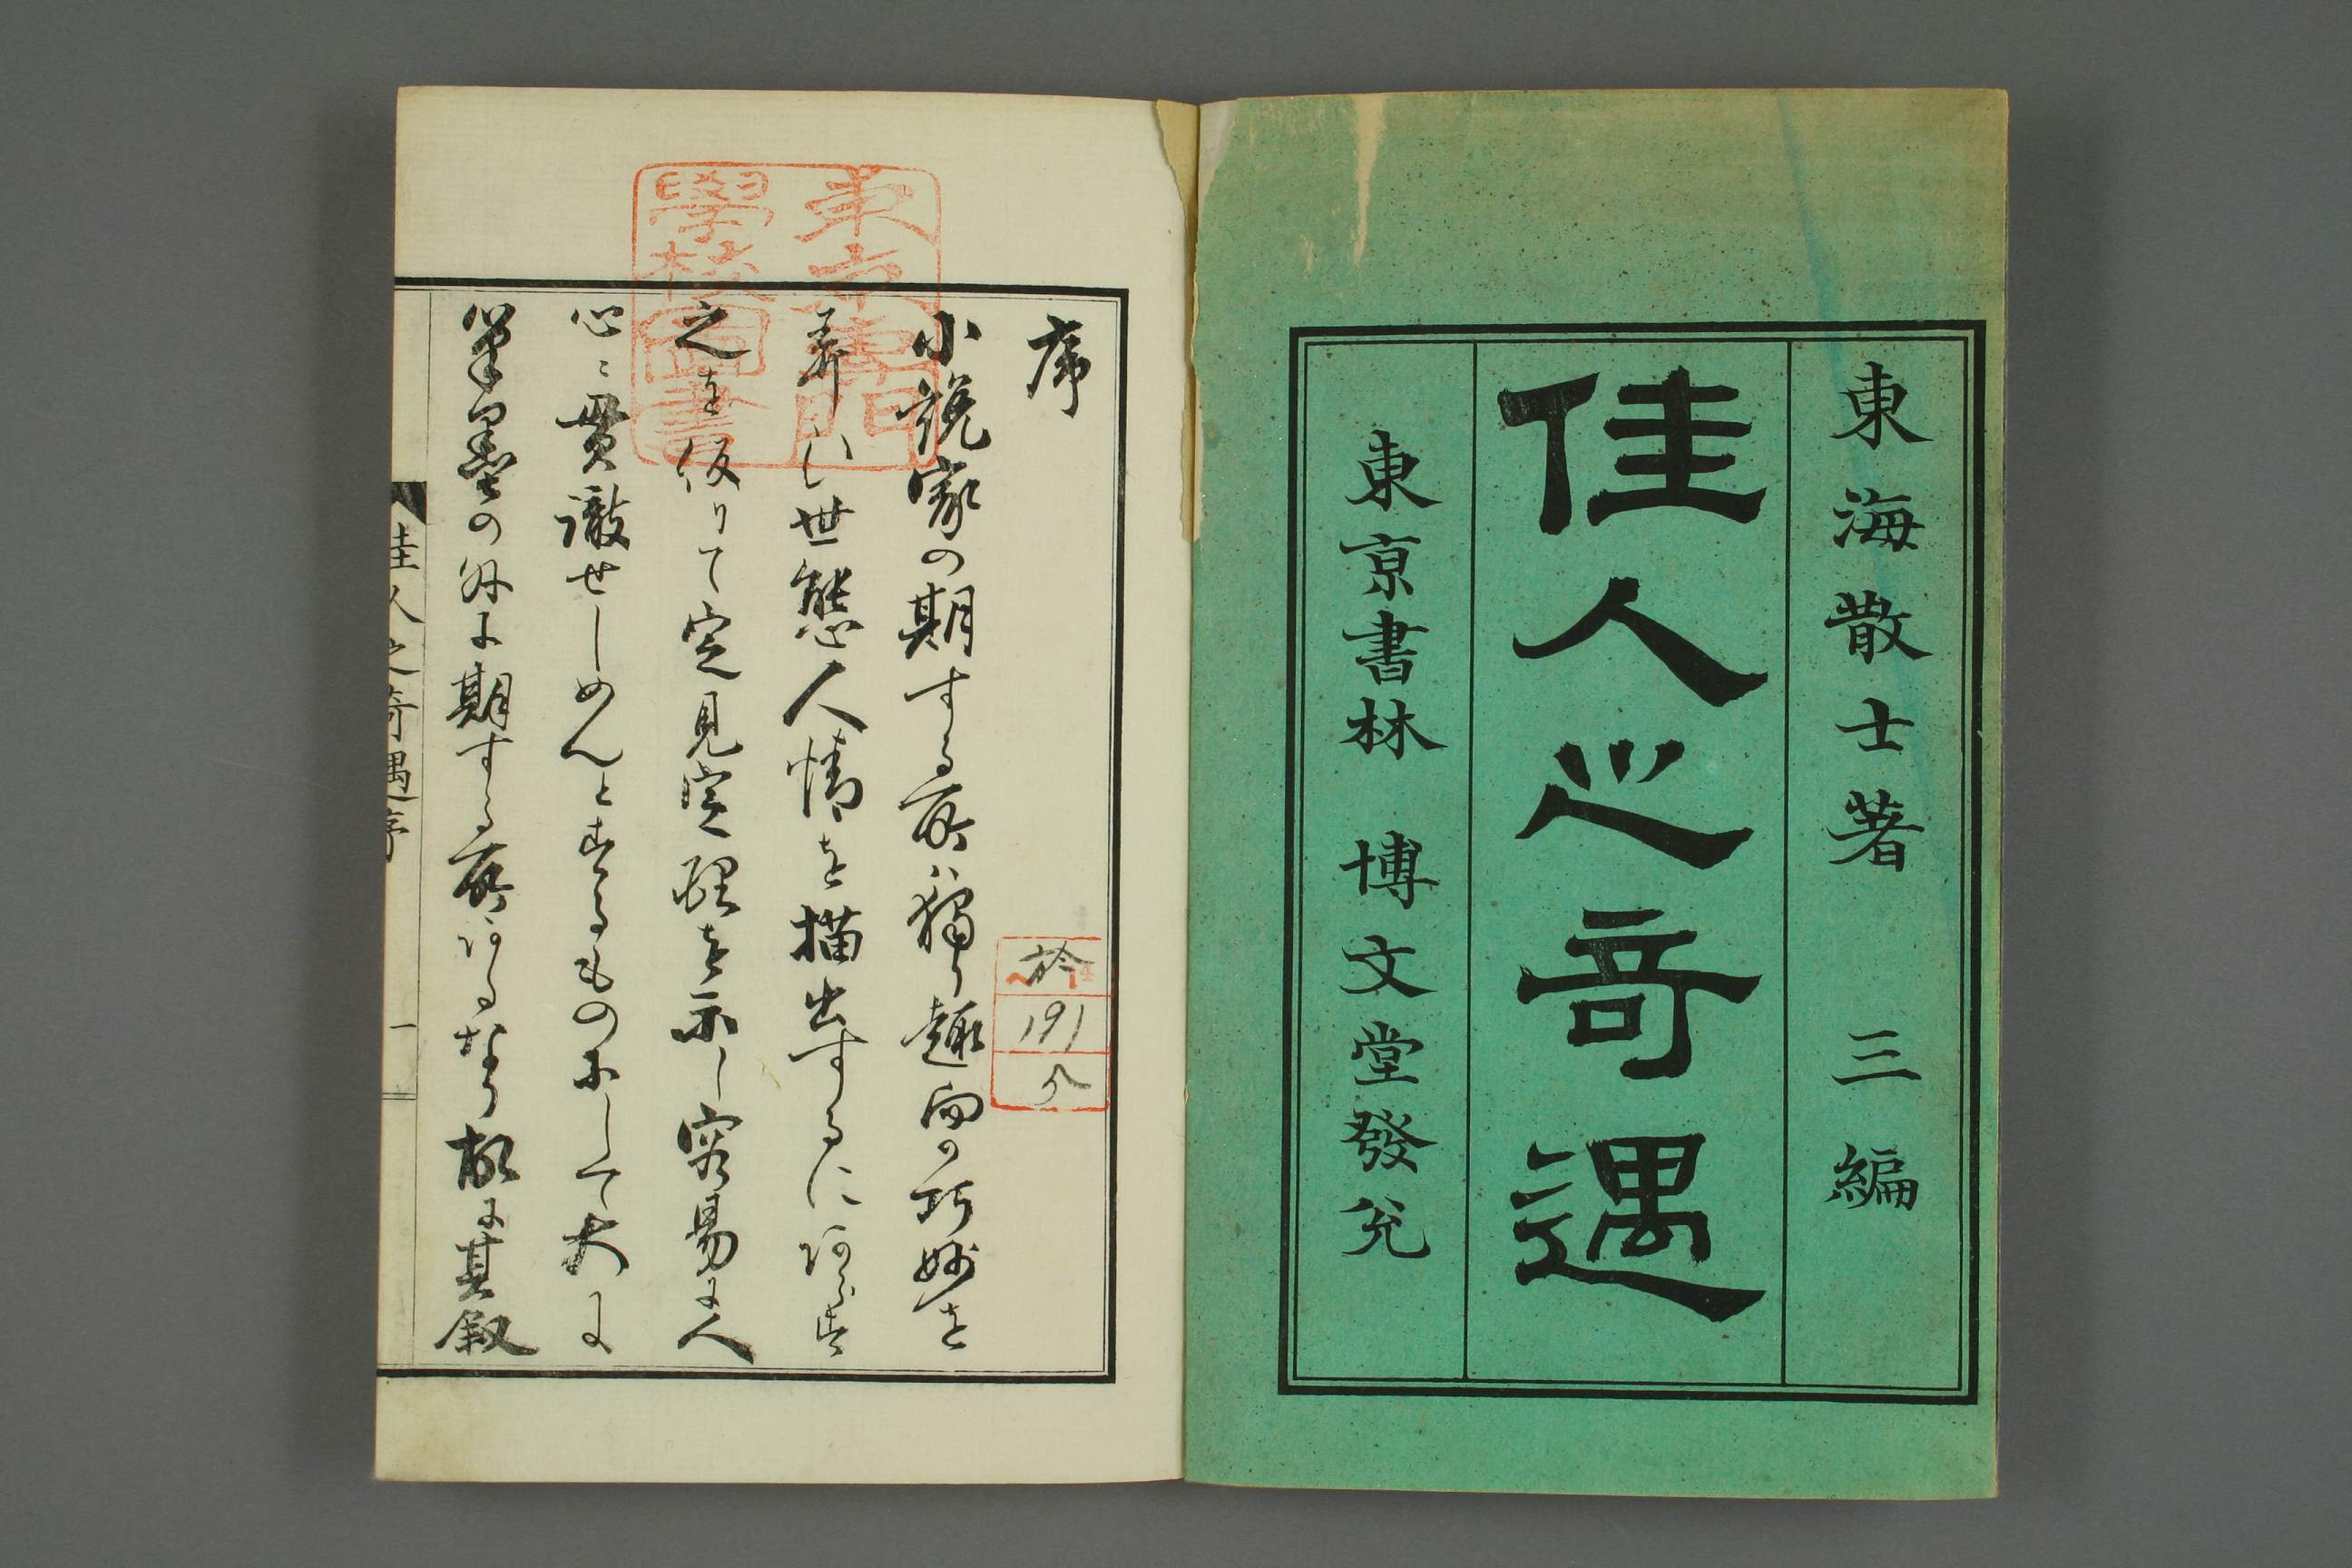 東海散士著 三編
佳人之奇遇
東京書林 博文堂發兌
序
小説家の期する所ハ獨り趣向の巧妙を
弄し世態人情を描出するにあらす
之を仮りて定見定理を示し容易に人
心ニ貫徹せしめんとするものにして大に
筆墨の外に期する所あるなり故に其叙
佳人之奇遇序
一
東京専門
學校圖書
191